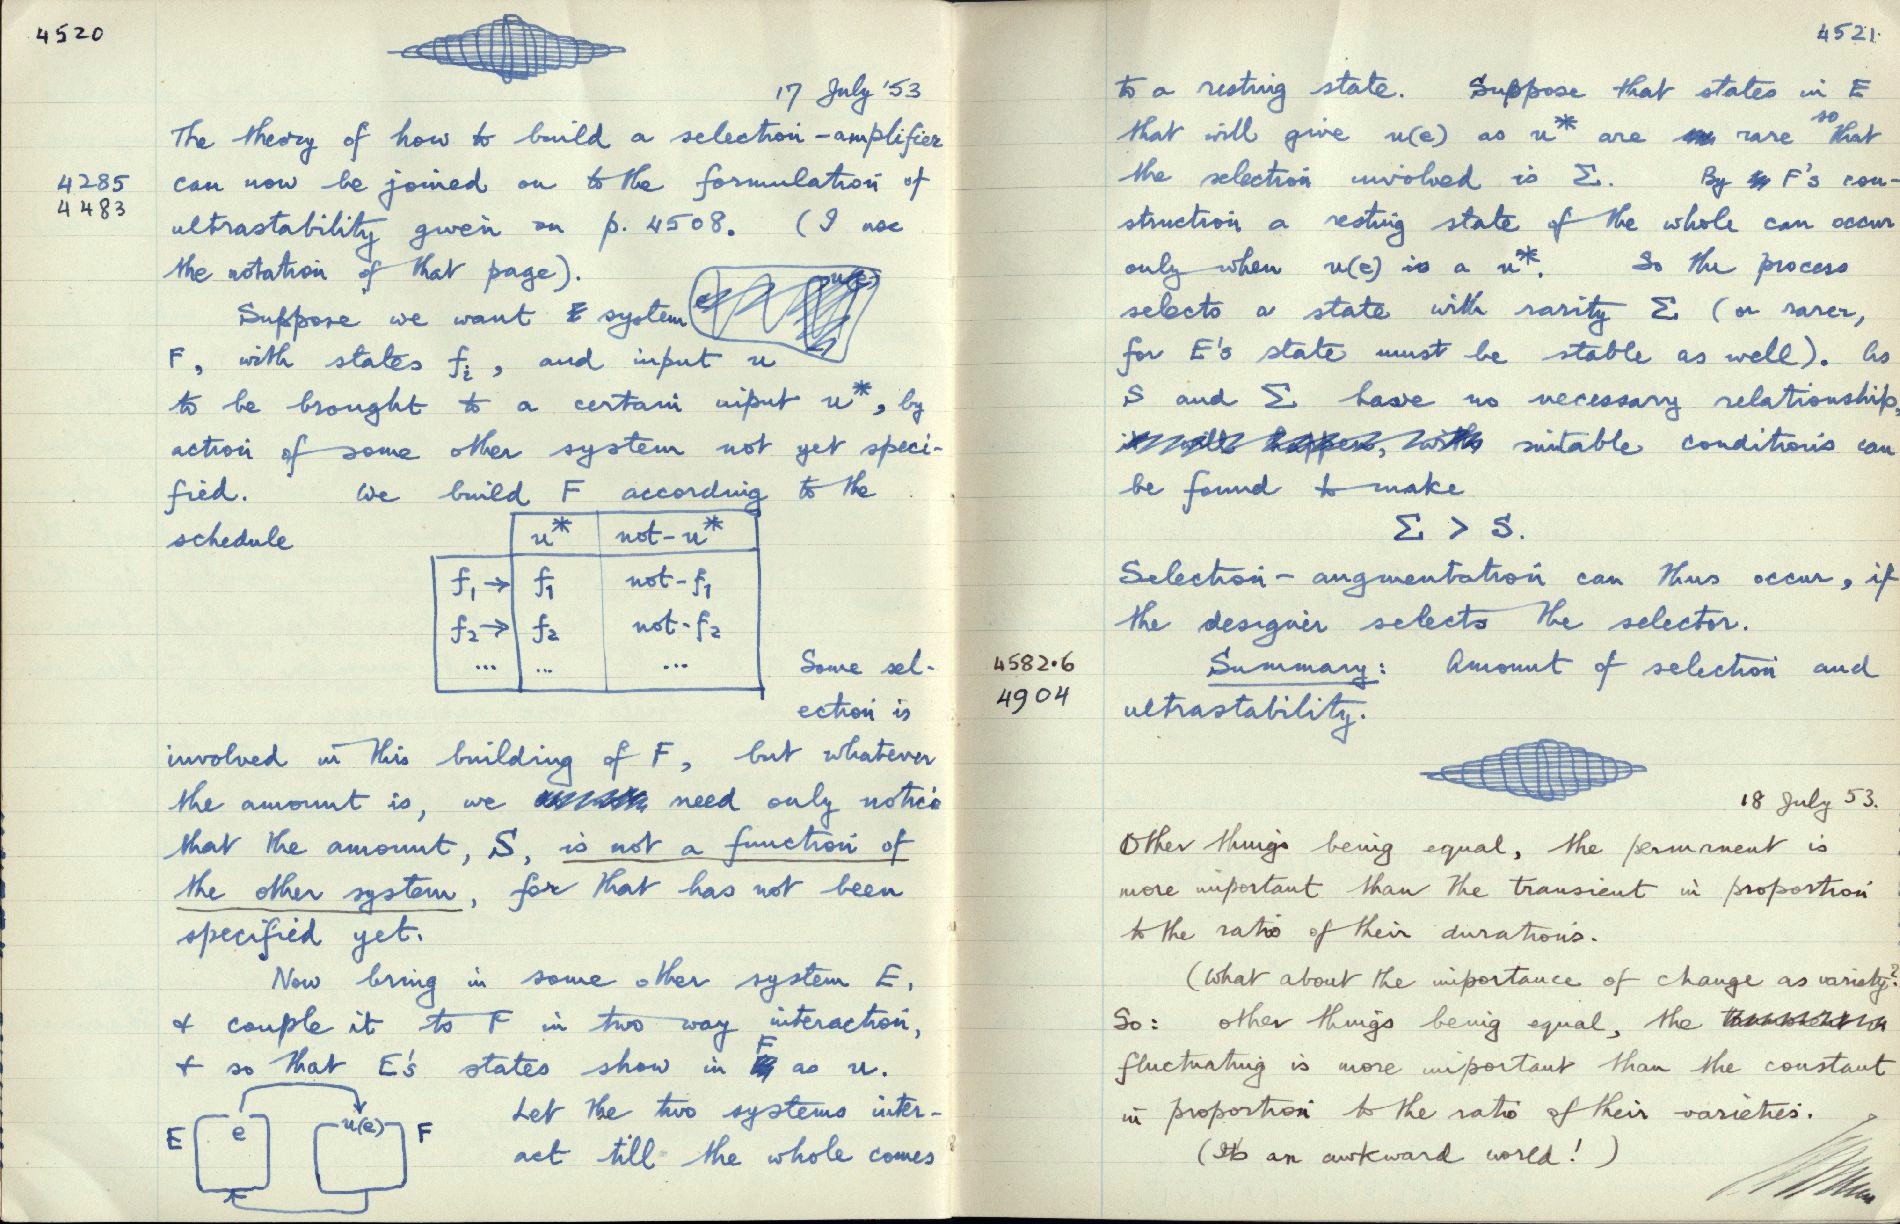 4520
17 July '53
The theory of how to build a selection-amplifier
4285
4483
can now be joined on to the formulation of
ultrastability given on p. 4508. (I use
the notation of that page).
Suppose we want system
F, with states fi, and input u
to be brought to a certain input u*, by
action of some other system not yet speci-
fied. We build F according to the
schedule
u* not-u*
f1 → f1 not-f1
f2 → f2 not-f2
... ... ...
Some sel-
ection is
involved in this building of F, but whatever
the amount is, we need only notice
that the amount, S, is not a function of
the other system, for that has not been
specified yet.
Now bring in some other system E,
& couple it to F in two way interaction,
& so that E's states show in F as u.
E e u(e) F
Let the two systems inter-
act till the whole comes
4521
to a resting state. Suppose that states in E
that will give u(e) as u* are rare so that
the selection involved is Σ. By F's con-
struction a resting state of the whole can occur
only when u(e) is a u*. So the process
selects a state with rarity Σ (or rarer,
for E's state must be stable as well). As
S and Σ have no necessary relationship,
suitable conditions can
be found to make
Σ > S.
Selection-augmentation can thus occur, if
the designer selects the selector.
4582.6
4904
Summary: Amount of selection and
ultrastability.
18 July 53.
Other things being equal, the permanent is
more important than the transient in proportion
to the ratio of their durations.
(What about the importance of change as variety?
So: other things being equal, the
fluctuating is more important than the constant
in proportion to the ratio of their varieties.
(It's an awkward world!)